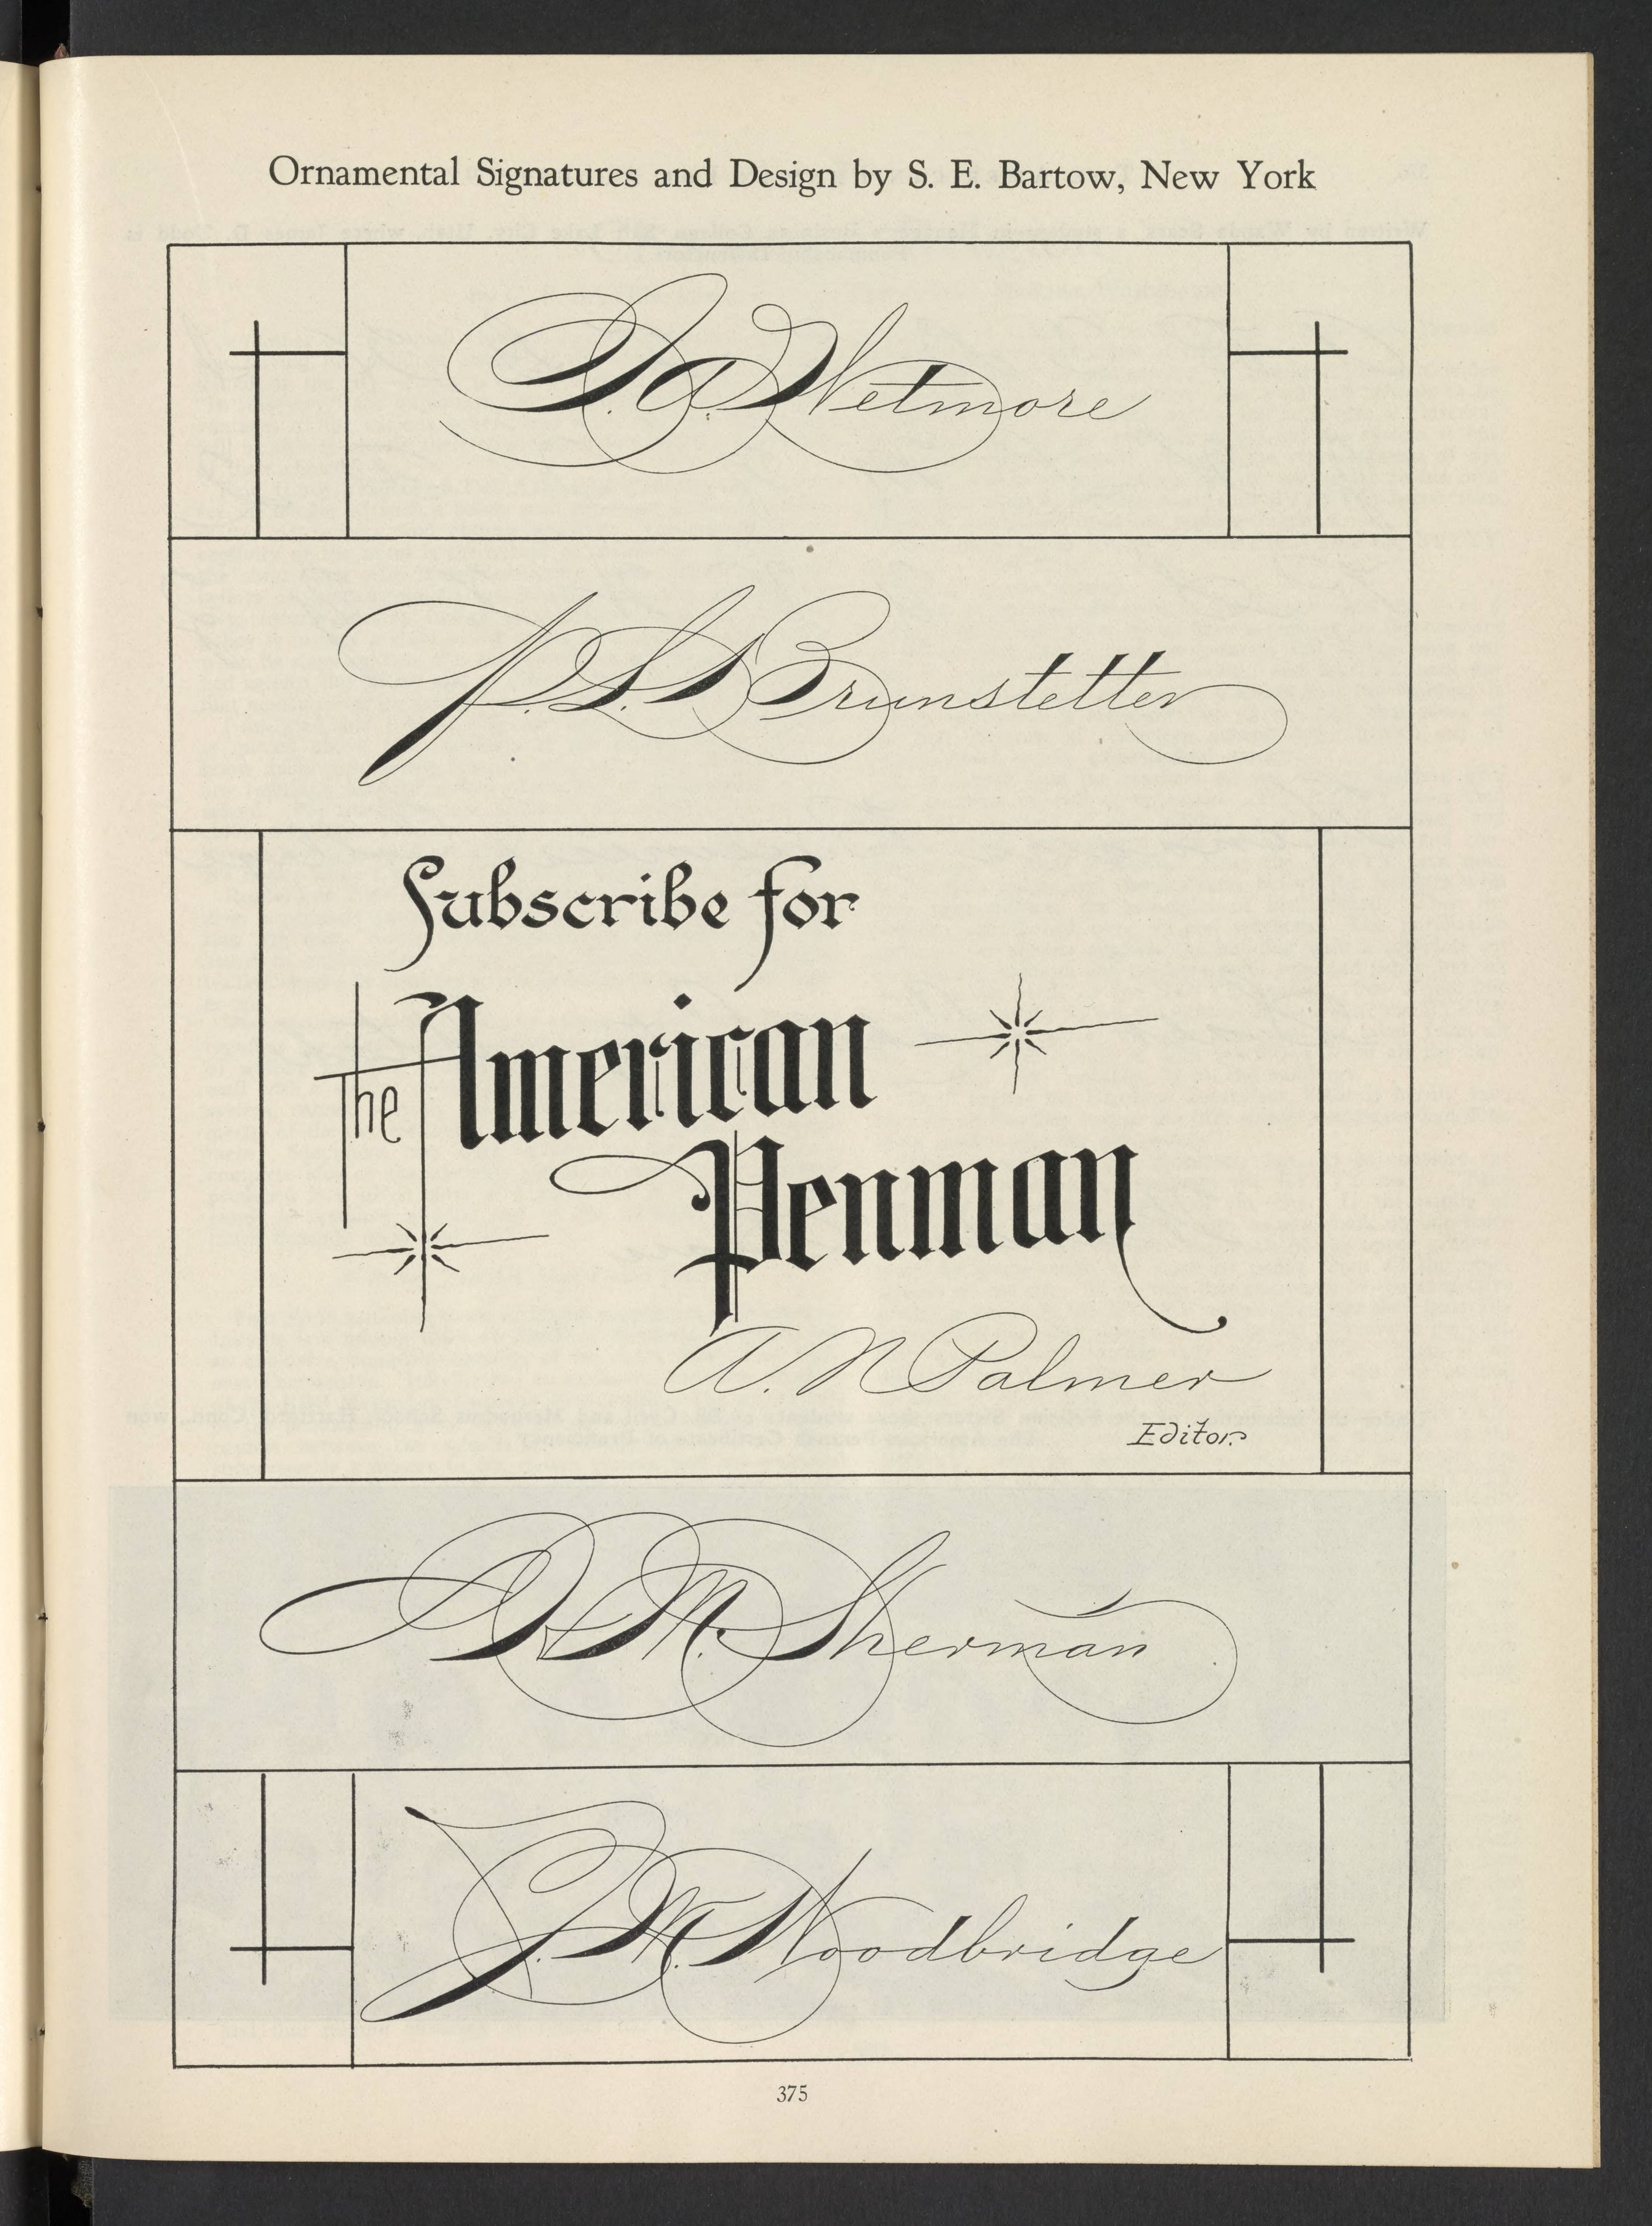 Ornamental Signatures and Design by S. E. Bartow, New York
S. A. Wetmore
P. L. S. Brunstetter
Subscribe for
The American
Penman
A. N. Palmer
Editor.
D. M. Sherman
J. M. Woodbridge
375